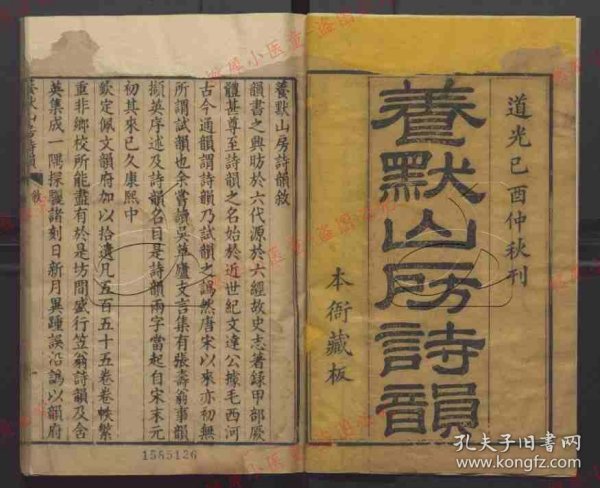 道光己酉仲秋刊
養默山房詩韻
本衙藏板
養默山房詩韻敘
韻書之興昉於六代源於六經故史志著錄甲部厥
體甚尊至詩韻之名始於近世紀文達公據毛西河
古今通韻謂詩韻乃試韻之譌然唐宋以來亦初無
所謂試韻也余嘗讀吳草廬支言集有張壽翁事韻
擷英序述及詩韻名目是詩韻兩字當起自宋末元
初其來已久康熙中
欽定佩文韻府加以拾遺凡五百五十五卷卷帙繁
重非鄉校所能盡有於是坊間盛行笠翁詩韻及含
英集成一隅探驪諸刻日新月異踵誤沿譌以韻府
養默山房詩韻 敘
1585126
孔夫子旧书网
www.kongfz.com